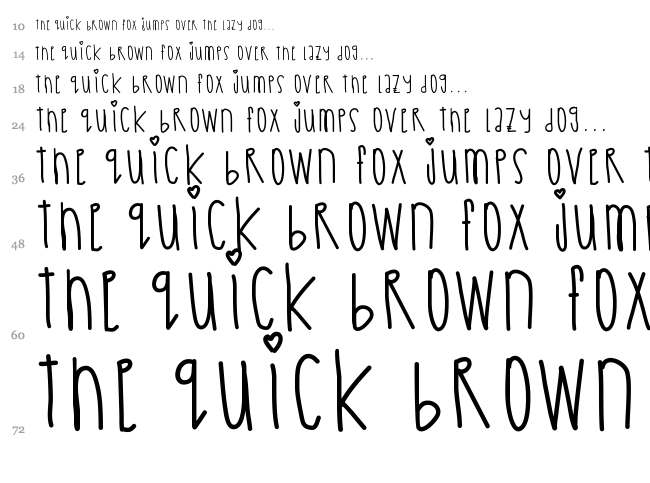 10 the quick brown fox jumps over the lazy dog...
14 the quick brown fox jumps over the lazy dog...
18 the quick brown fox jumps over the lazy dog...
24 the quick brown fox jumps over the lazy dog...
36 the quick brown fox jumps over t
48 the quick brown fox jum
60 the quick brown fox
72 the quick brown